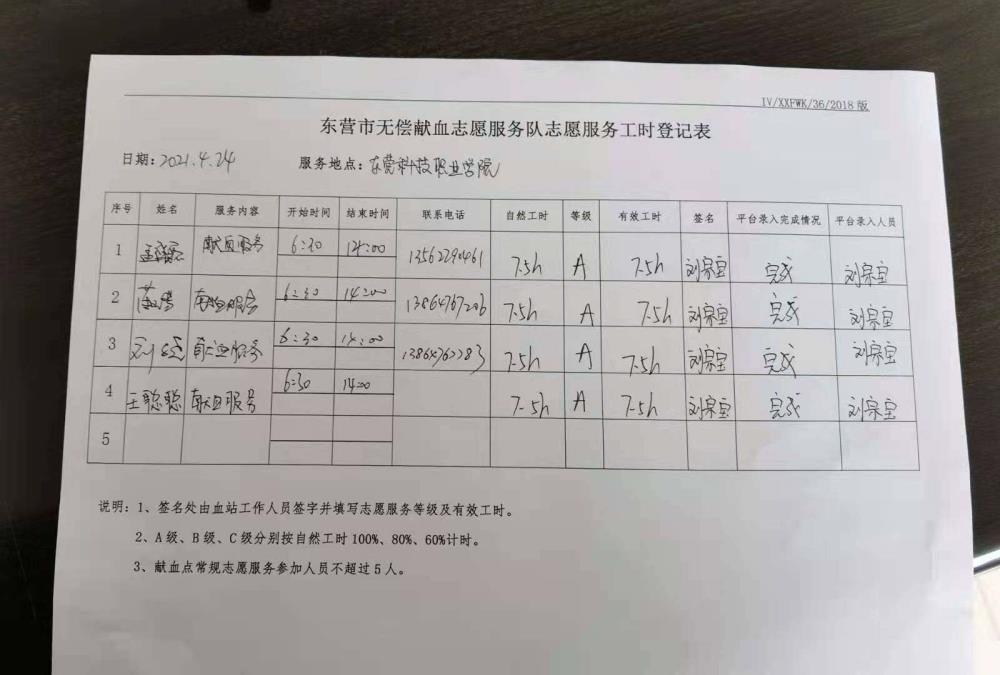 IV/XXFWK/36/2018版
东营市无偿献血志愿服务队志愿服务工时登记表
日期：2021.4.24 服务地点：东营科技职业学院
序号 姓名 服务内容 开始时间 结束时间 联系电话 自然工时 等级 有效工时 签名 平台录入完成情况 平台录入人员
1 献血服务 6:30 14:00 13562290461 7.5h A 7.5h 刘宗宝 完成 刘宗宝
2 献血服务 6:30 14:00 13864767206 7.5h A 7.5h 刘宗宝 完成 刘宗宝
3 献血服务 6:30 14:00 7.5h A 7.5h 刘宗宝 完成 刘宗宝
4 王聪聪 献血服务 6:30 14:00 7.5h A 7.5h 刘宗宝 完成 刘宗宝
5
说明：1、签名处由血站工作人员签字并填写志愿服务等级及有效工时。
2、A级、B级、C级分别按自然工时100%、80%、60%计时。
3、献血点常规志愿服务参加人员不超过5人。